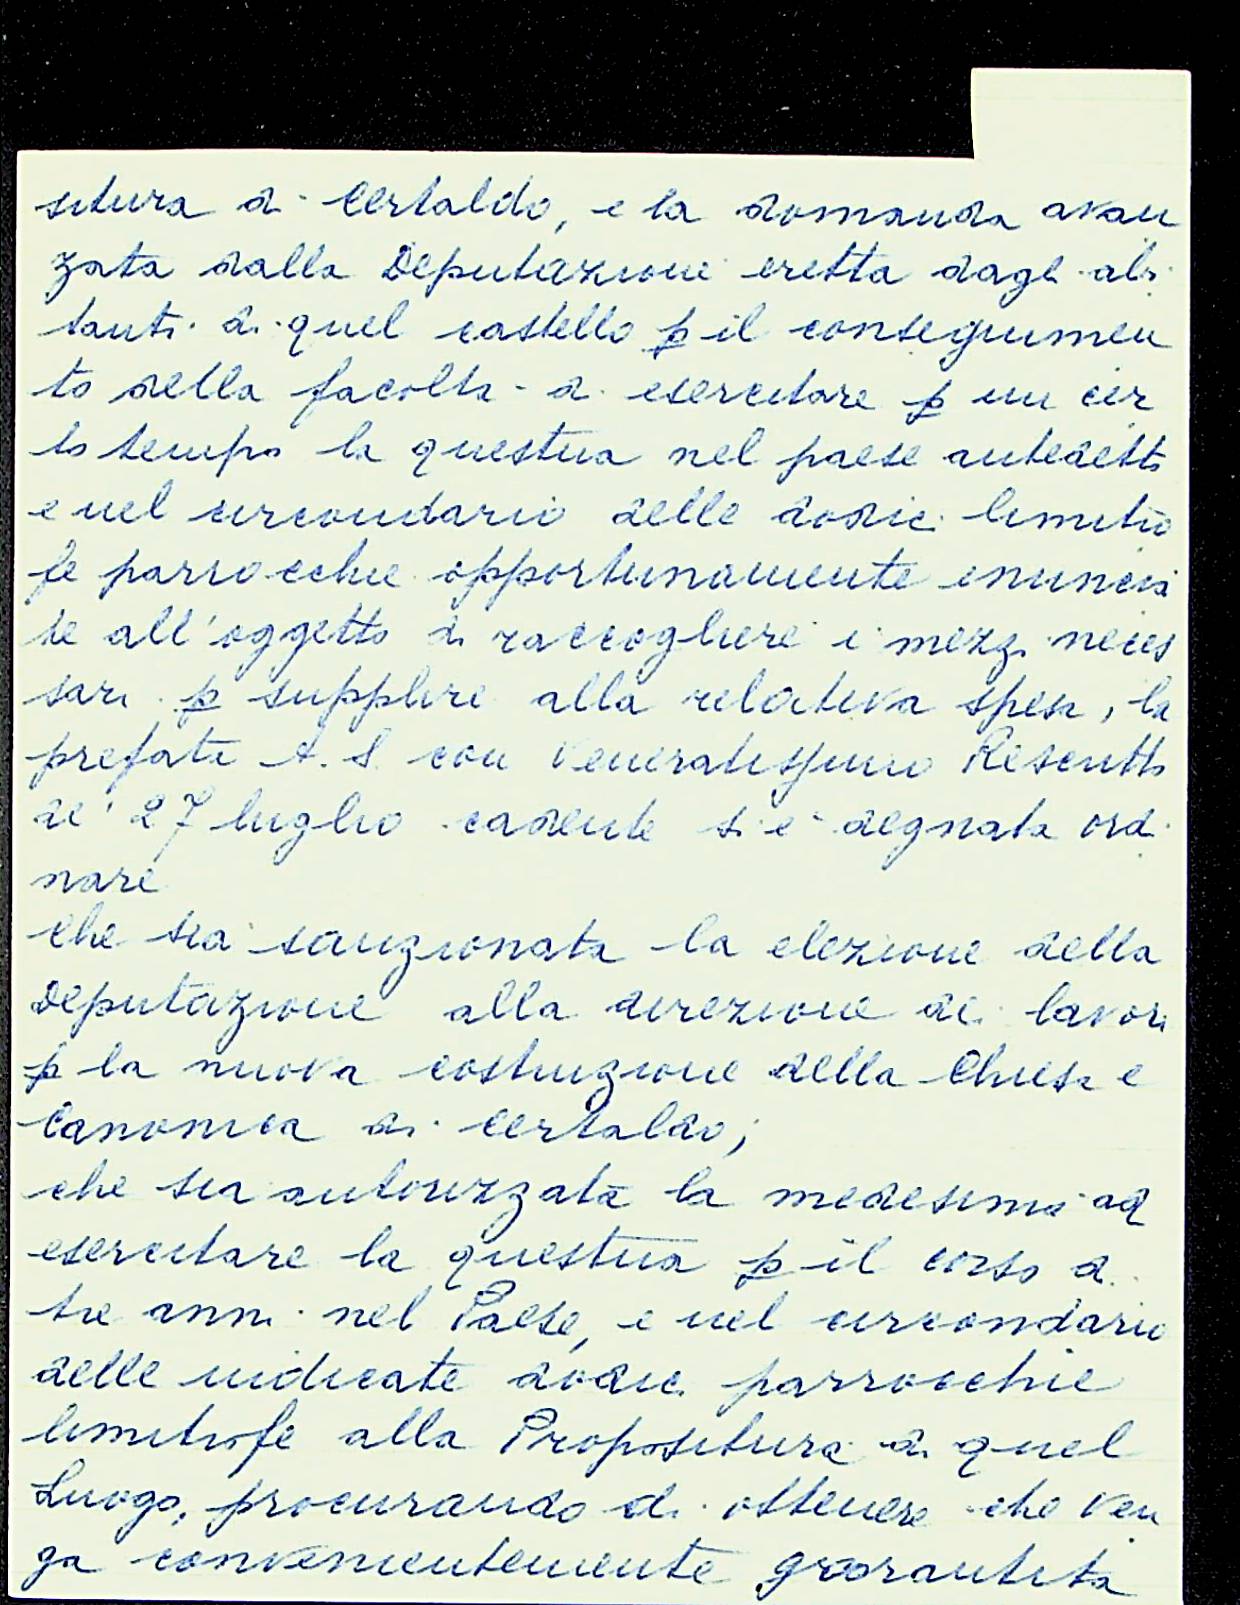 situra di Certaldo, e la domanda avan
zata dalla Deputazione eretta dagli abi
tanti di quel castello p il conseguimen
to della facoltà di esercitare p un cer
to tempo la questua nel paese antedetto
e nel circondario delle dodici limitro
fe parrocchie opportunamente enuncia
te all'oggetto di raccogliere i mezzi neces
sari p supplire alla relativa spesa, la
prefata A. S. con Veneratissimo Rescritto
de' 27 luglio cadente si è degnata ordi
nare
che sia sanzionata la elezione della
Deputazione alla direzione dei lavori
p la nuova costruzione della Chiesa e
Canonica di Certaldo;
che sia autorizzata la medesima ad
esercitare la questua p il corso di
tre anni nel Paese, e nel circondario
delle indicate dodici parrocchie
limitrofe alla Propositura di quel
Luogo, procurando di ottenere che ven
ga convenientemente garantita